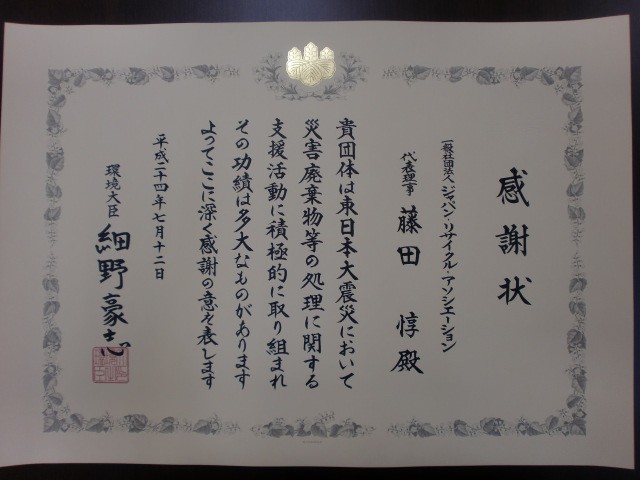 感謝状
一般社団法人ジャパン・リサイクル・アソシエーション
代表理事 藤田 惇殿
貴団体は東日本大震災において
災害廃棄物等の処理に関する
支援活動に積極的に取り組まれ
その功績は多大なものがあります
よってここに深く感謝の意を表します
平成二十四年七月十二日
環境大臣 細野豪志